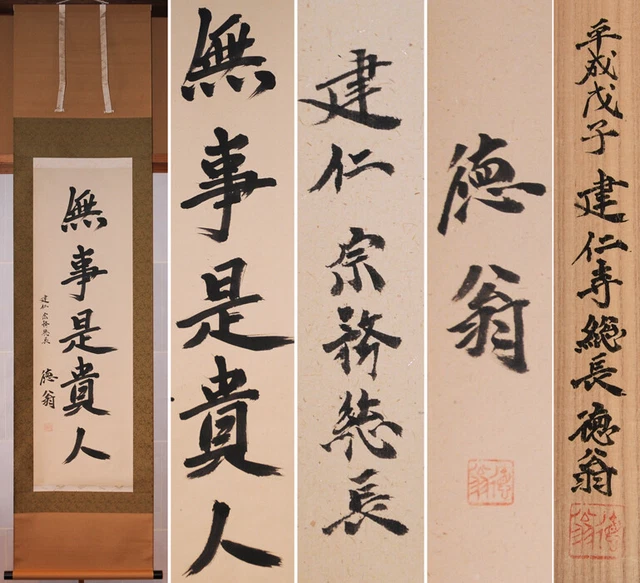 無事是貴人
建仁 宗務総長
德翁
無事是貴人
建仁 宗務総長
德翁
德翁
平成戊子 建仁寺総長 德翁
德翁